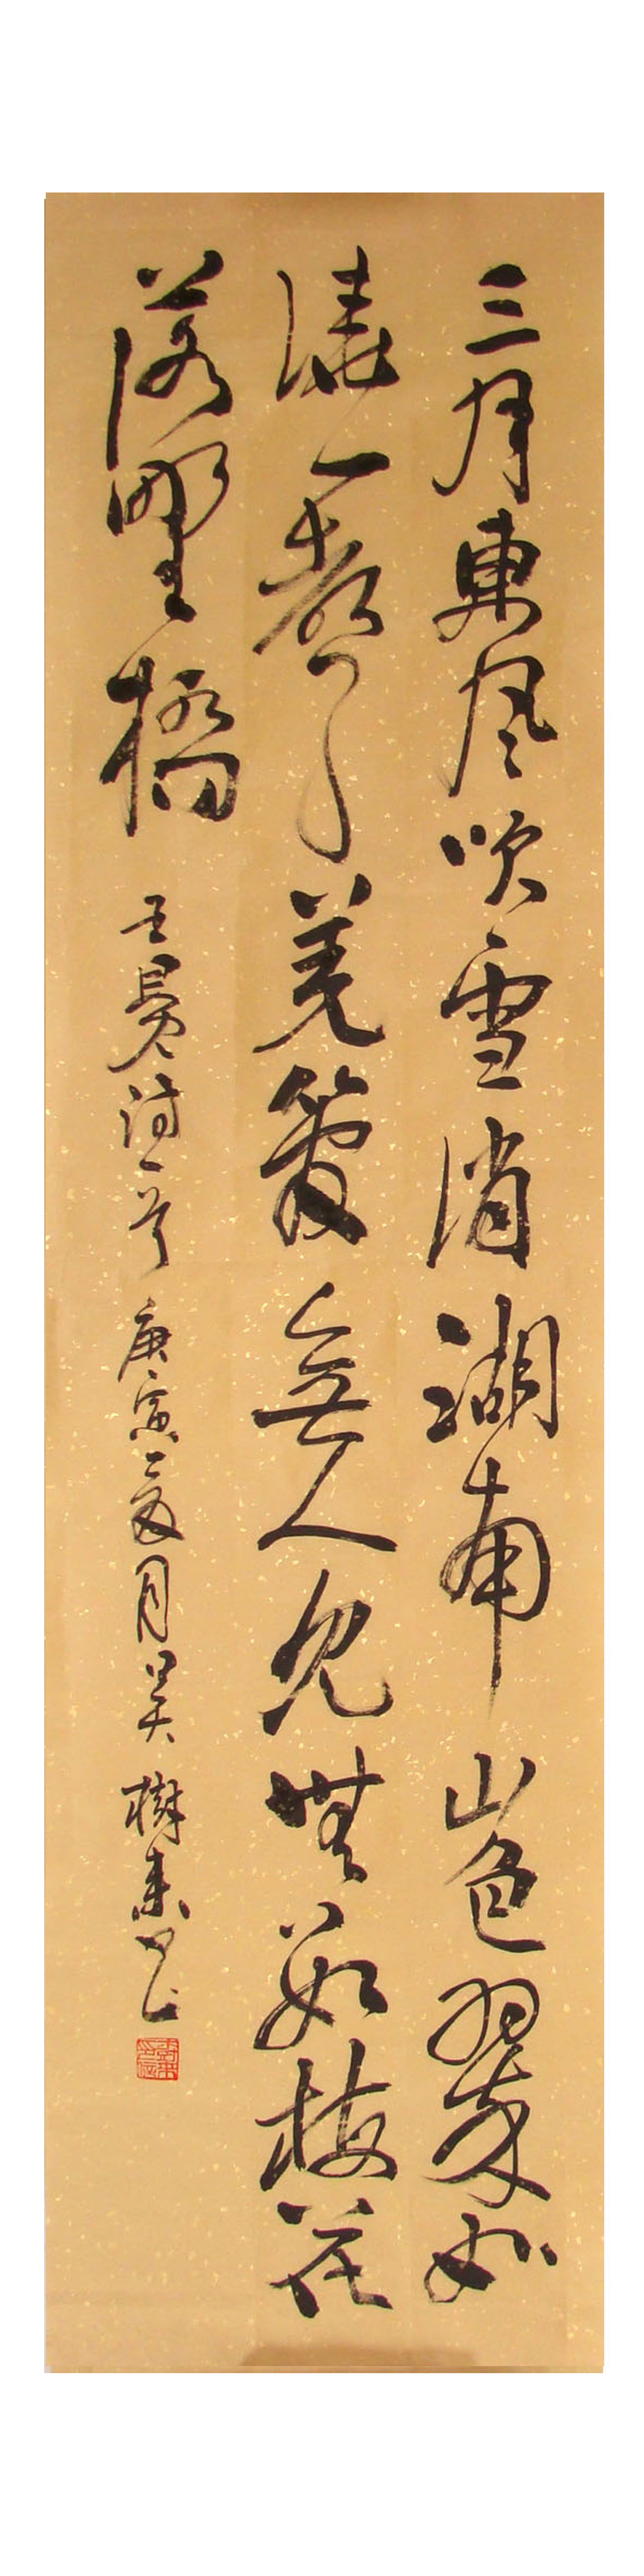 三月東风吹雪消湖南山色翠如
澆一聲羌管無人見無數梅花
落野橋
王冕诗一首 庚寅夏月吴樹東书